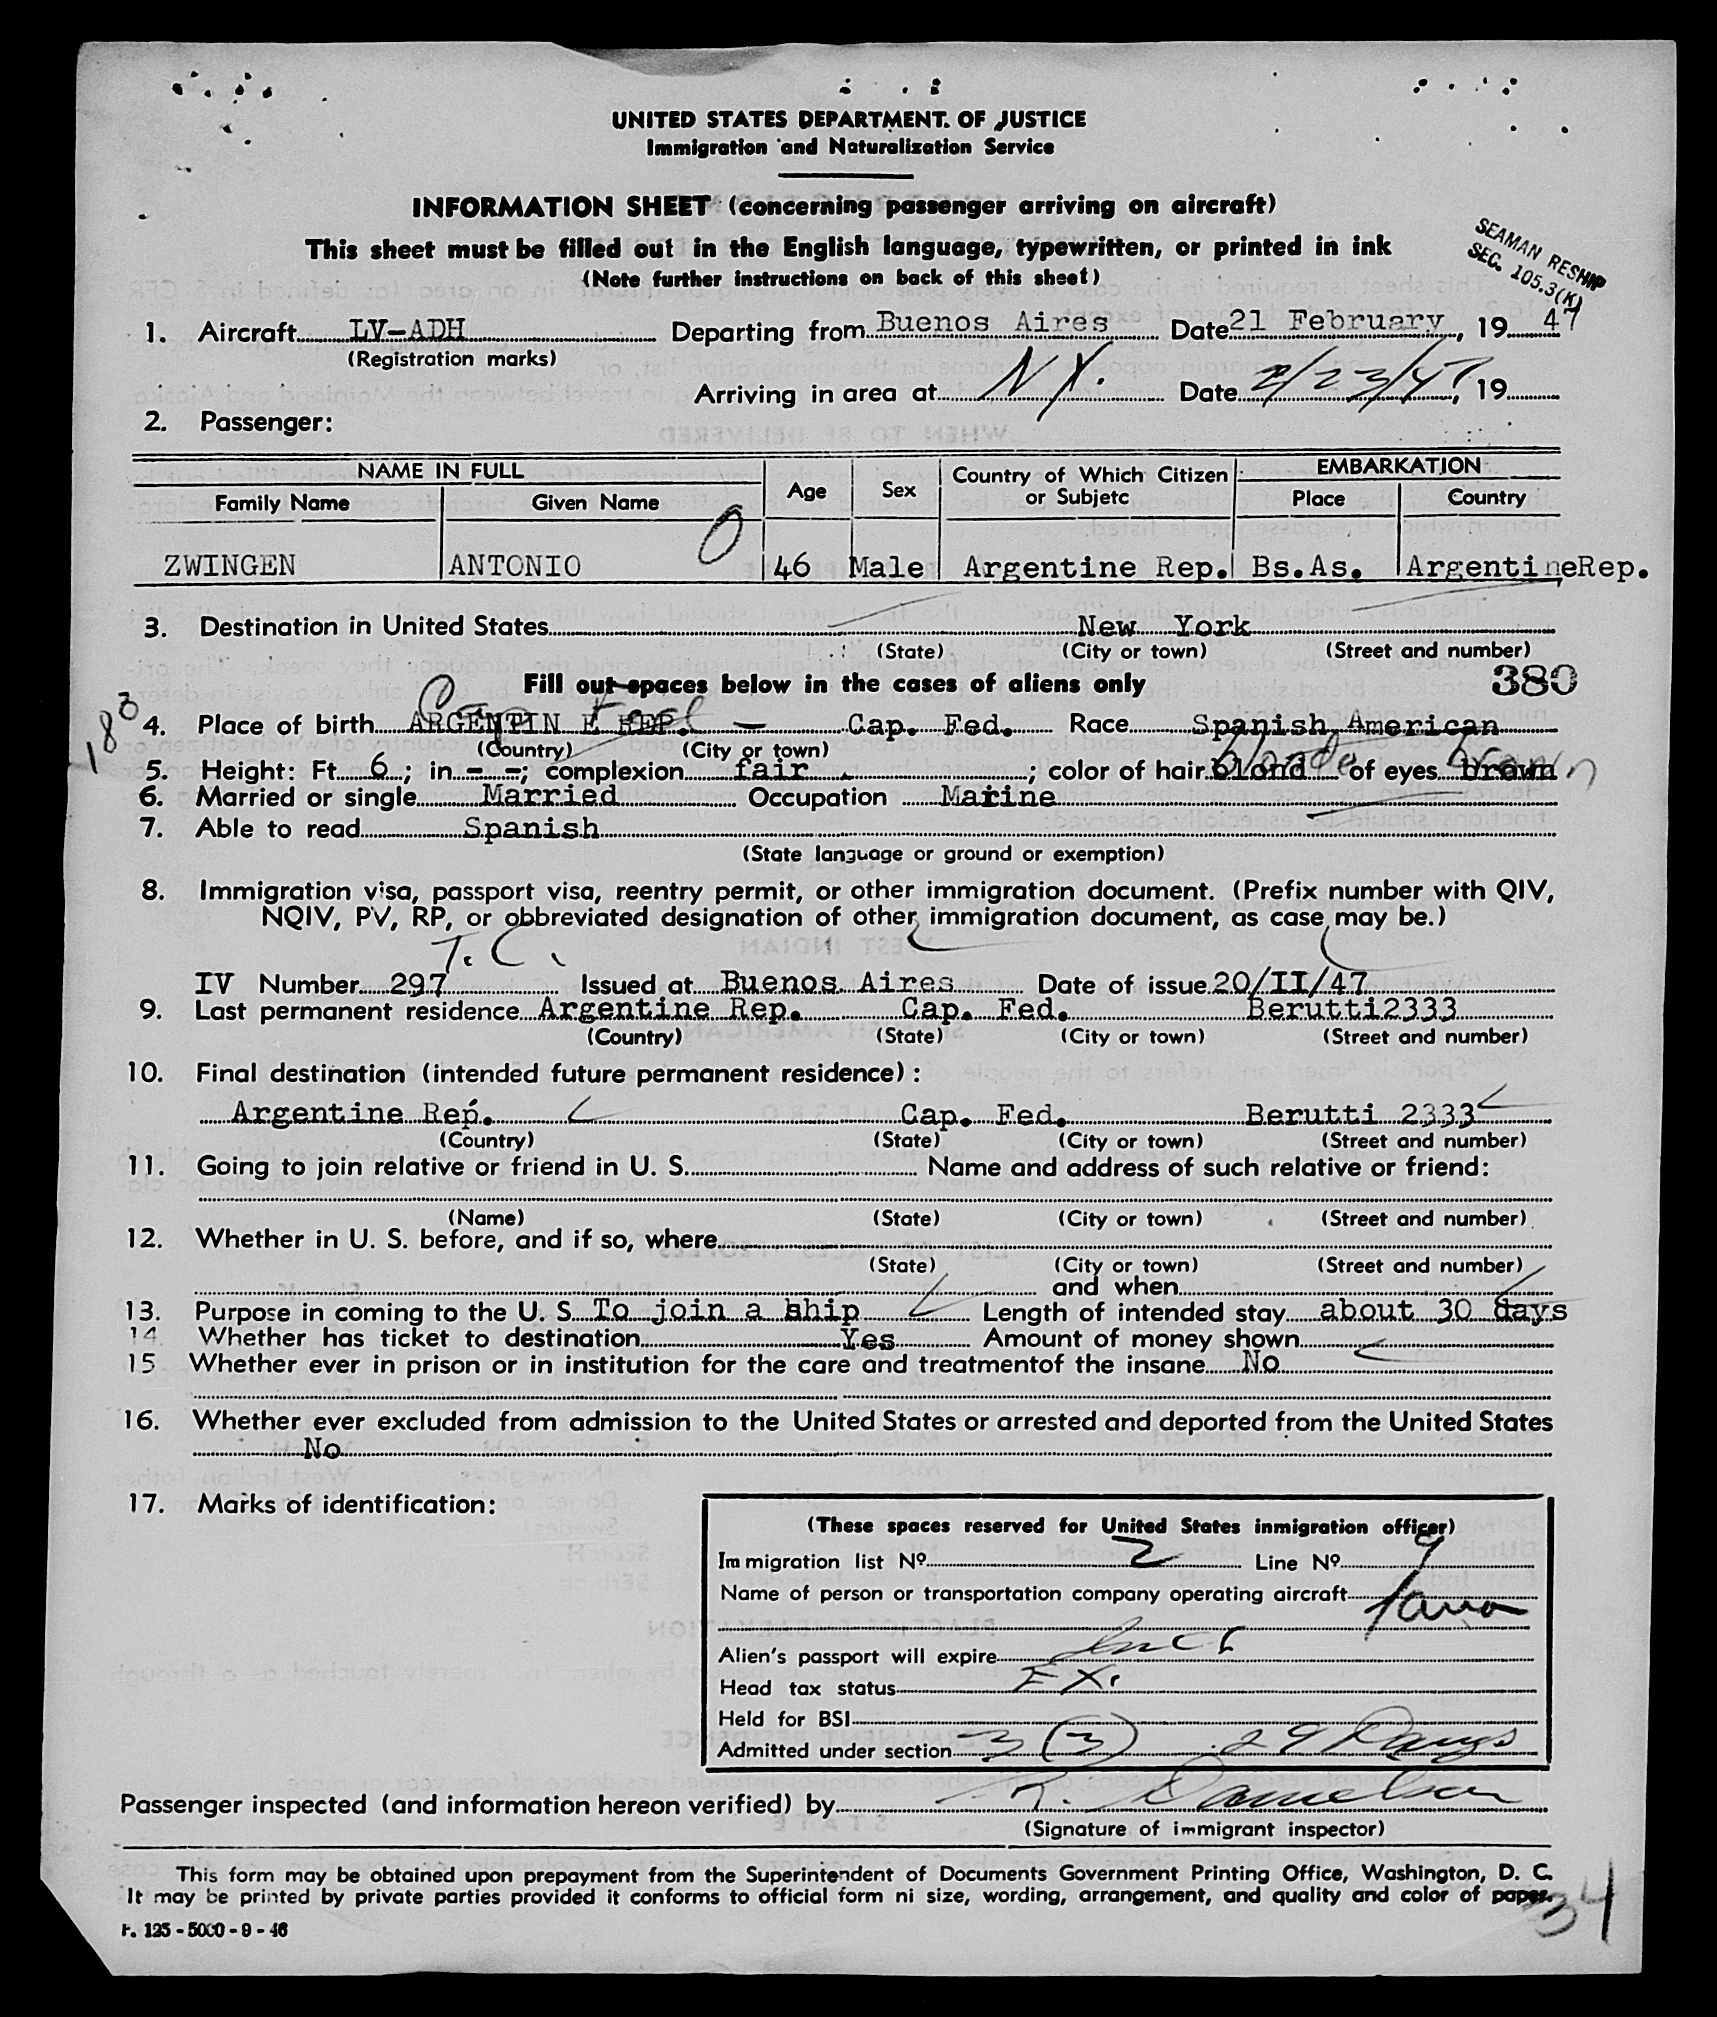 UNITED STATES DEPARTMENT. OF JUSTICE
Immigration and Naturalization Service
INFORMATION SHEET (concerning passenger arriving on aircraft)
This sheet must be filled out in the English language, typewritten, or printed in ink
(Note further instructions on back of this sheet)
SEAMAN RESHIP
SEC. 105.3(K)
1. Aircraft LV-ADH Departing from Buenos Aires Date 21 February, 19 47
(Registration marks)
Arriving in area at N.Y. Date 2/23/47, 19
2. Passenger:
NAME IN FULL Age Sex Country of Which Citizen or Subjetc EMBARKATION
Family Name Given Name Place Country
ZWINGEN ANTONIO O 46 Male Argentine Rep. Bs.As. ArgentineRep.
3. Destination in United States New York
(State) (City or town) (Street and number)
Fill out spaces below in the cases of aliens only 380
183
Cap Fed
4. Place of birth ARGENTIN E REP. — Cap. Fed. Race Spanish American
(Country) (City or town)
blonde brown
5. Height: Ft. 6; in. - -; complexion fair; color of hair blond of eyes brown
6. Married or single Married Occupation Marine
7. Able to read Spanish
(State language or ground or exemption)
8. Immigration visa, passport visa, reentry permit, or other immigration document. (Prefix number with QIV,
NQIV, PV, RP, or obbreviated designation of other immigration document, as case may be.)
T.C.
IV Number 297 Issued at Buenos Aires Date of issue 20/II/47
9. Last permanent residence Argentine Rep. Cap. Fed. Berutti2333
(Country) (State) (City or town) (Street and number)
10. Final destination (intended future permanent residence):
Argentine Rep. Cap. Fed. Berutti 2333
(Country) (State) (City or town) (Street and number)
11. Going to join relative or friend in U. S. Name and address of such relative or friend:
(Name) (State) (City or town) (Street and number)
12. Whether in U. S. before, and if so, where
(State) (City or town) (Street and number)
and when
13. Purpose in coming to the U. S. To join a ship Length of intended stay about 30 days
14 Whether has ticket to destination Yes Amount of money shown
15 Whether ever in prison or in institution for the care and treatmentof the insane No
16. Whether ever excluded from admission to the United States or arrested and deported from the United States
No
17. Marks of identification:
(These spaces reserved for United States inmigration officer)
Immigration list Nº 2 Line Nº 9
Name of person or transportation company operating aircraft Fama
Alien's passport will expire
Head tax status EX.
Held for BSI
Admitted under section 3 (3) 29 Days
Passenger inspected (and information hereon verified) by R. Danielson
(Signature of immigrant inspector)
This form may be obtained upon prepayment from the Superintendent of Documents Government Printing Office, Washington, D. C.
It may be printed by private parties provided it conforms to official form ni size, wording, arrangement, and quality and color of paper.
F. 125 - 5000 - 9 - 46
34